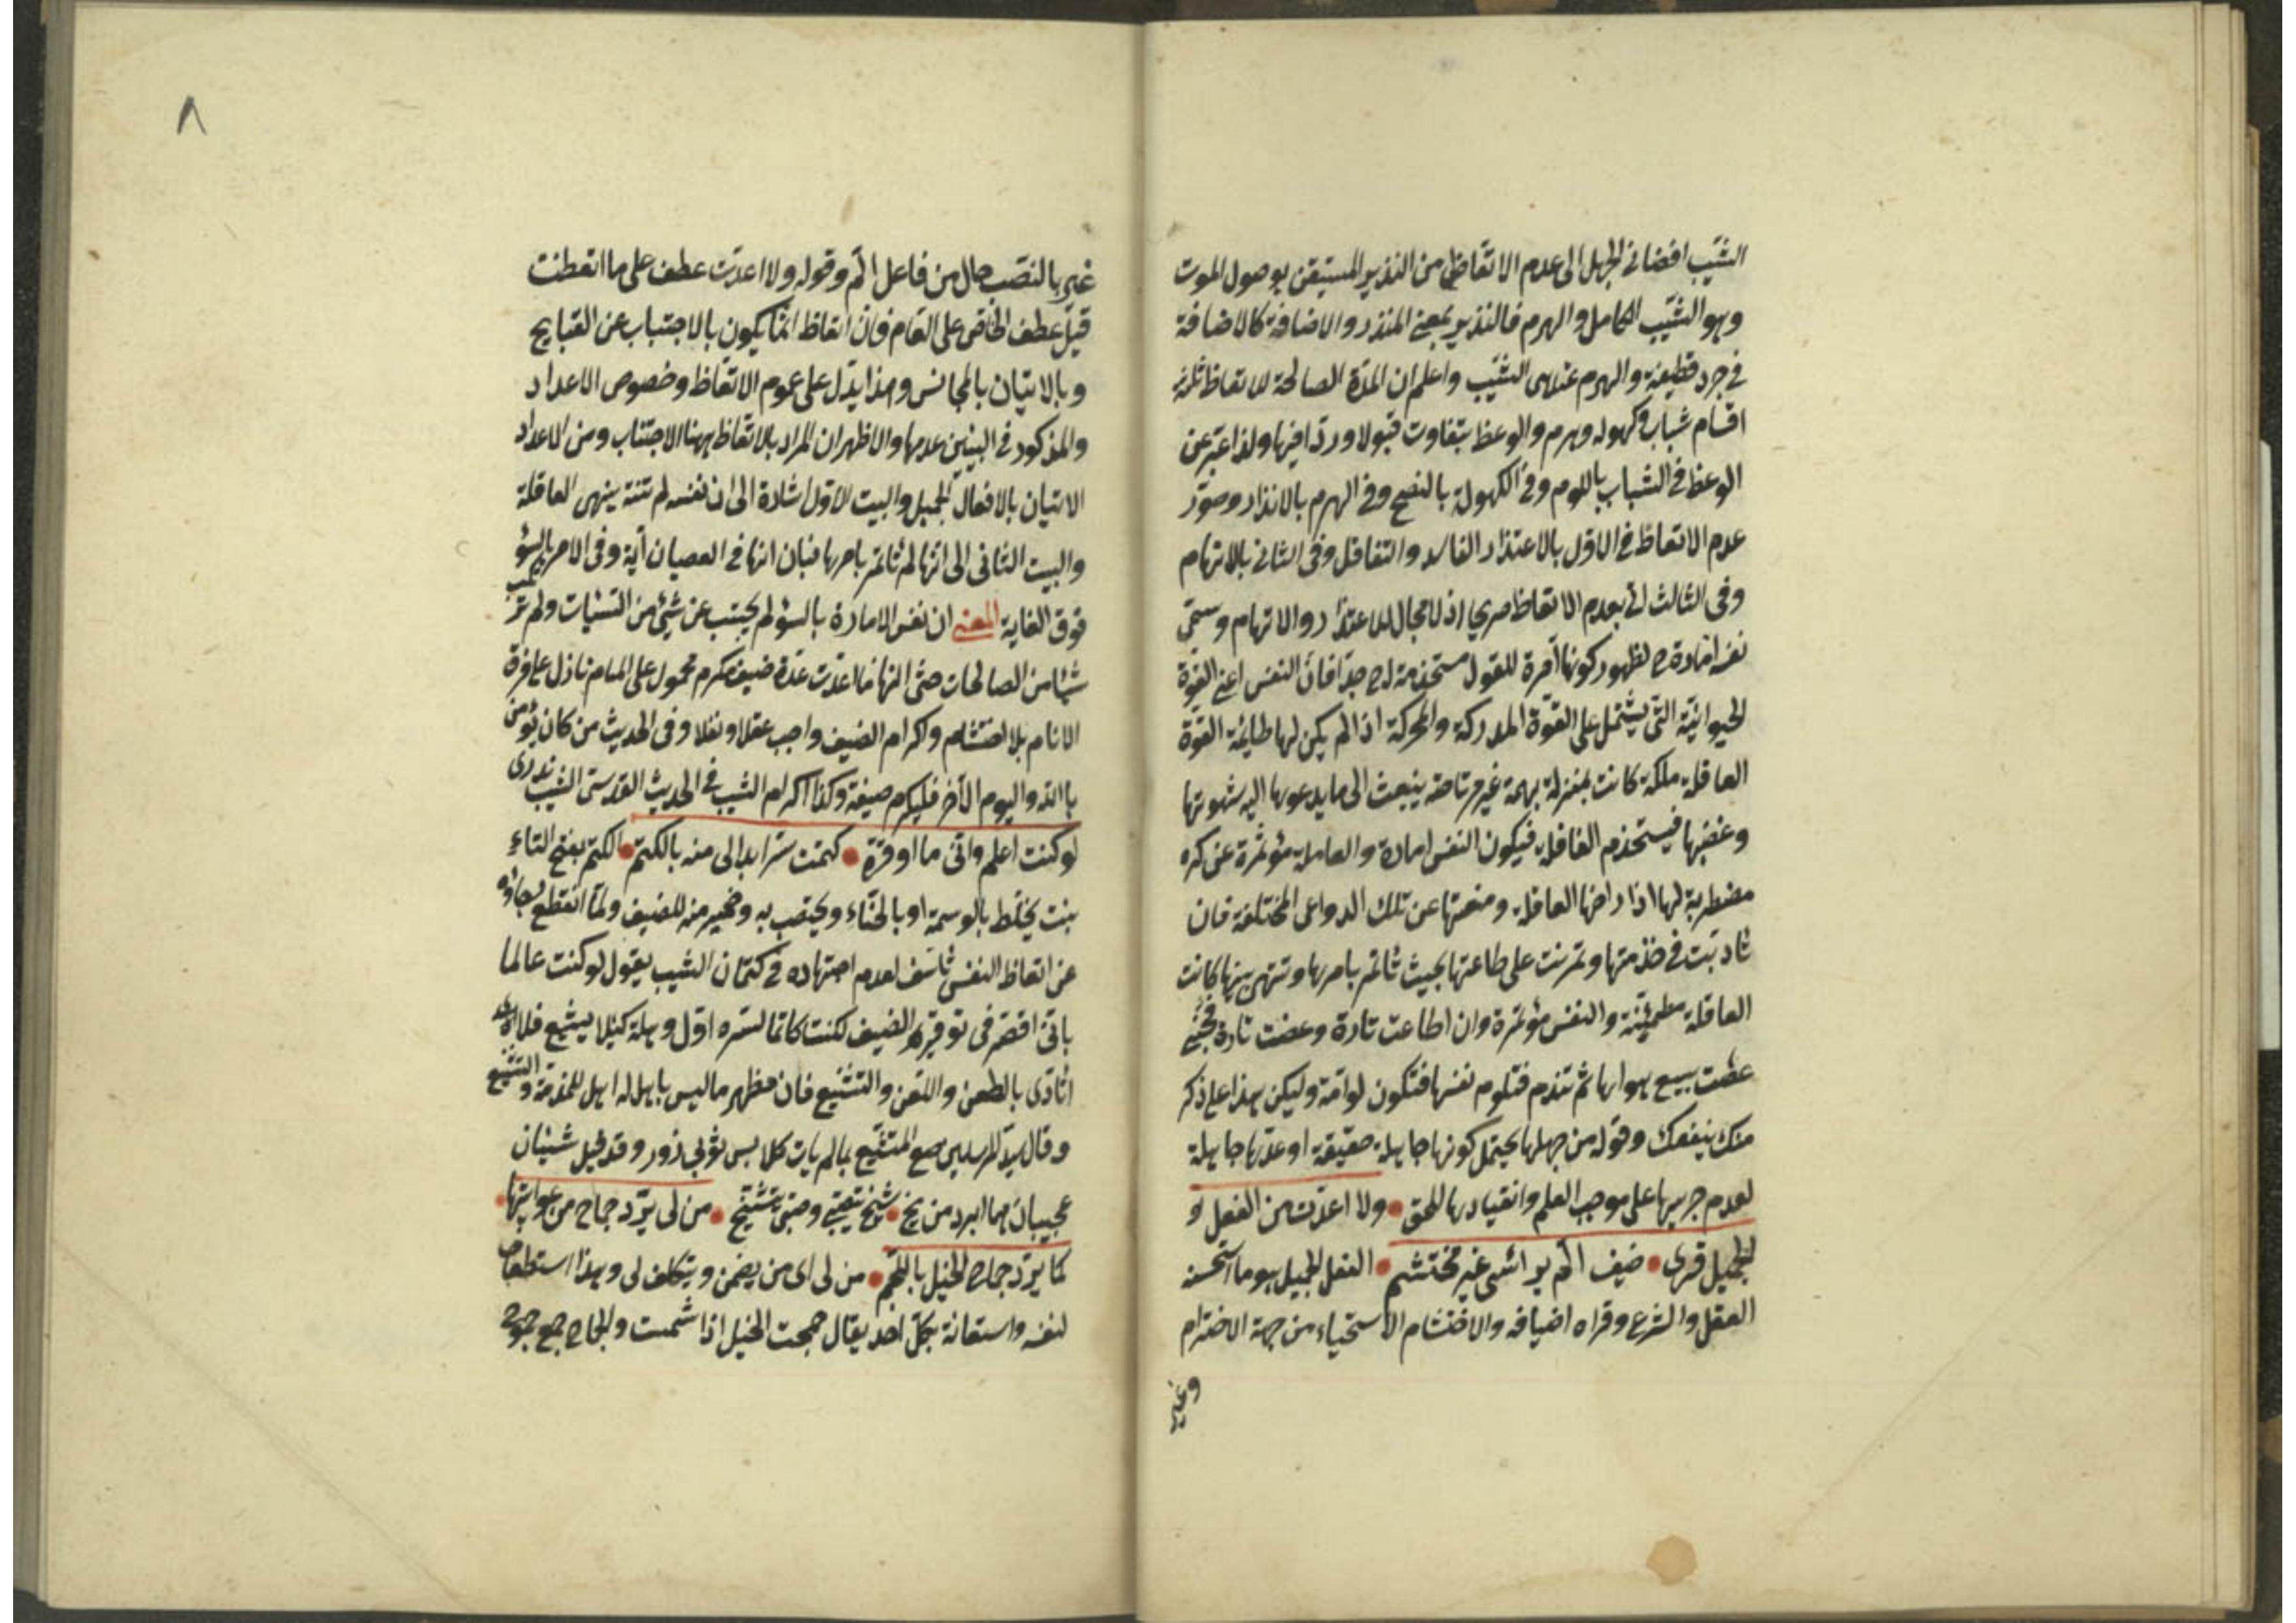 الشيب افضاني الجهل الى عدم الاتعاظ من النذير المستيقن بوصول الموت
وهو الشيب الكامل والهرم فالنذير بمعنى المنذر والاضافة كالاضافة
في جرد قطيفة والهرم عند الشيب واعلم ان المدة الصالحة للاتعاظ ثلثة
اقسام شباب وكهوله وهرم والوعظ يتفاوت قبولا وردا فيها ولذا عبر عن
الوعظ في الشباب باللوم وفي الكهولة بالنصح وفي الهرم بالانذار وصوّر
عدم الاتعاظ في الاول بالاعتذار الفاسد والتغافل وفي الثاني بالاتهام
وفى الثالث بعدم الاتعاظ صريحا اذ لا مجال للاعتذار والاتهام وسمّى
نفسه امّارة لظهور كونها آمرة للعقول مستخدمة له جدّا فان النفس اعني القوّة
الحيوانيّة التي يشتمل على القوّة المدركة والمحركة اذا لم يكن لها طاعة القوة
العاقلة ملكة كانت بمنزلة بهيمة غير مرتاضة ينبعث الى ما يدعوها اليه شهوتها
وغضبها فيستخدم العاقلة فيكون النفس امارة والعاقلة مؤتمرة عن كره
مضطربة لها اذا راضها العاقلة ومنعتها عن تلك الدواعى المختلفة فان
تادبت في خدمتها وتمرنت على طاعتها بحيث تأتمر بامرها وتنتهي بنهيها كانت
العاقلة مطمئنة والنفس مؤتمرة وان اطاعت تارة وعصت تارة فحين
عصت يبيع هواها ثم تندم فتلوم نفسها فتكون لوامة وليكن هذا على ذكر
منك ينفعك وقوله من جهلها يحتمل كونها جاهلة حقيقة او عدّها جاهلة
لعدم جريها على موجب العلم وانقيادها للحق ولا اعدت من الفعل
الجميل قرى ضيف الم برأسى غير محتشم الفعل الجميل هو ما استحسنه
العقل والشرع وقراه اضيافه والاحتشام الاستحياء من جهة الاحترام
وغير
٨
غير بالنصب حال من فاعل الم وقوله ولا اعدت عطف على ما اتعظت
قيل عطف الخاص على العام فان اتعاظ انما يكون بالاجتناب عن القبايح
وبالاتيان بالمحاسن وهذا يدل على عموم الاتعاظ وخصوص الاعداد
والمذكور في البيتين عدمها والاظهر ان المراد بالاتعاظ ههنا الاجتناب ومن الاعداد
الاتيان بالافعال الجميل والبيت الاول اشارة الى ان نفسه لم تنته بنهى العاقلة
والبيت الثانى الى انها لم تأتمر بامرها فبان انها في العصيان آية وفى الامر بالسوء
فوق الغاية المعنى ان نفس الامارة بالسؤ لم يجتنب عن شيء من السيئات ولم
شيئا من الصالحات حتى انها ما اعدت عدة ضيف مكرم محمول على الهام نازل على فرة
الانام بلا احتشام واكرام الضيف واجب عقلا ونقلا وفى الحديث من كان يؤمن
بالله واليوم الآخر فليكرم ضيفه وكذا اكرام الشيب في الحديث القدسى الشيب نورى
لو كنت اعلم وانى ما اوقرة كتمت سرا بدا لى منه بالكتم الكتم بفتح التاء
نبت يخلط بالوسمة او بالحناء ويختضب به وضمير منه للضيف ولما انقطع رجاؤه
عن اتعاظ النفس تأسف لعدم اجتهاده في كتمان الشيب يقول لو كنت عالما
بانى اقصر فى توقير الضيف لكنت كاتما لسره اول وهلة كيلا يشيع فلا
اتأذى بالطعن واللعن والتشنيع فان مظهر ما ليس باهل له اهل للمذمة والتشنيع
وقال سيد المرسلين صلعم المتشبع بما لم يات كلابس ثوبي زور وقد قيل شيئان
عجيبان هما ابرد من يخ شيخ يتصبى وصبى يتشيخ من لى بردّ جماح من غوايتها
كما يردّ جماح الخيل باللجم من لى اى من يضمن ويتكلف لى وهذا استعطاف
لنفسه واستعانة بكل احد يقال جمحت الخيل اذا شمست والجماح جمع جموح